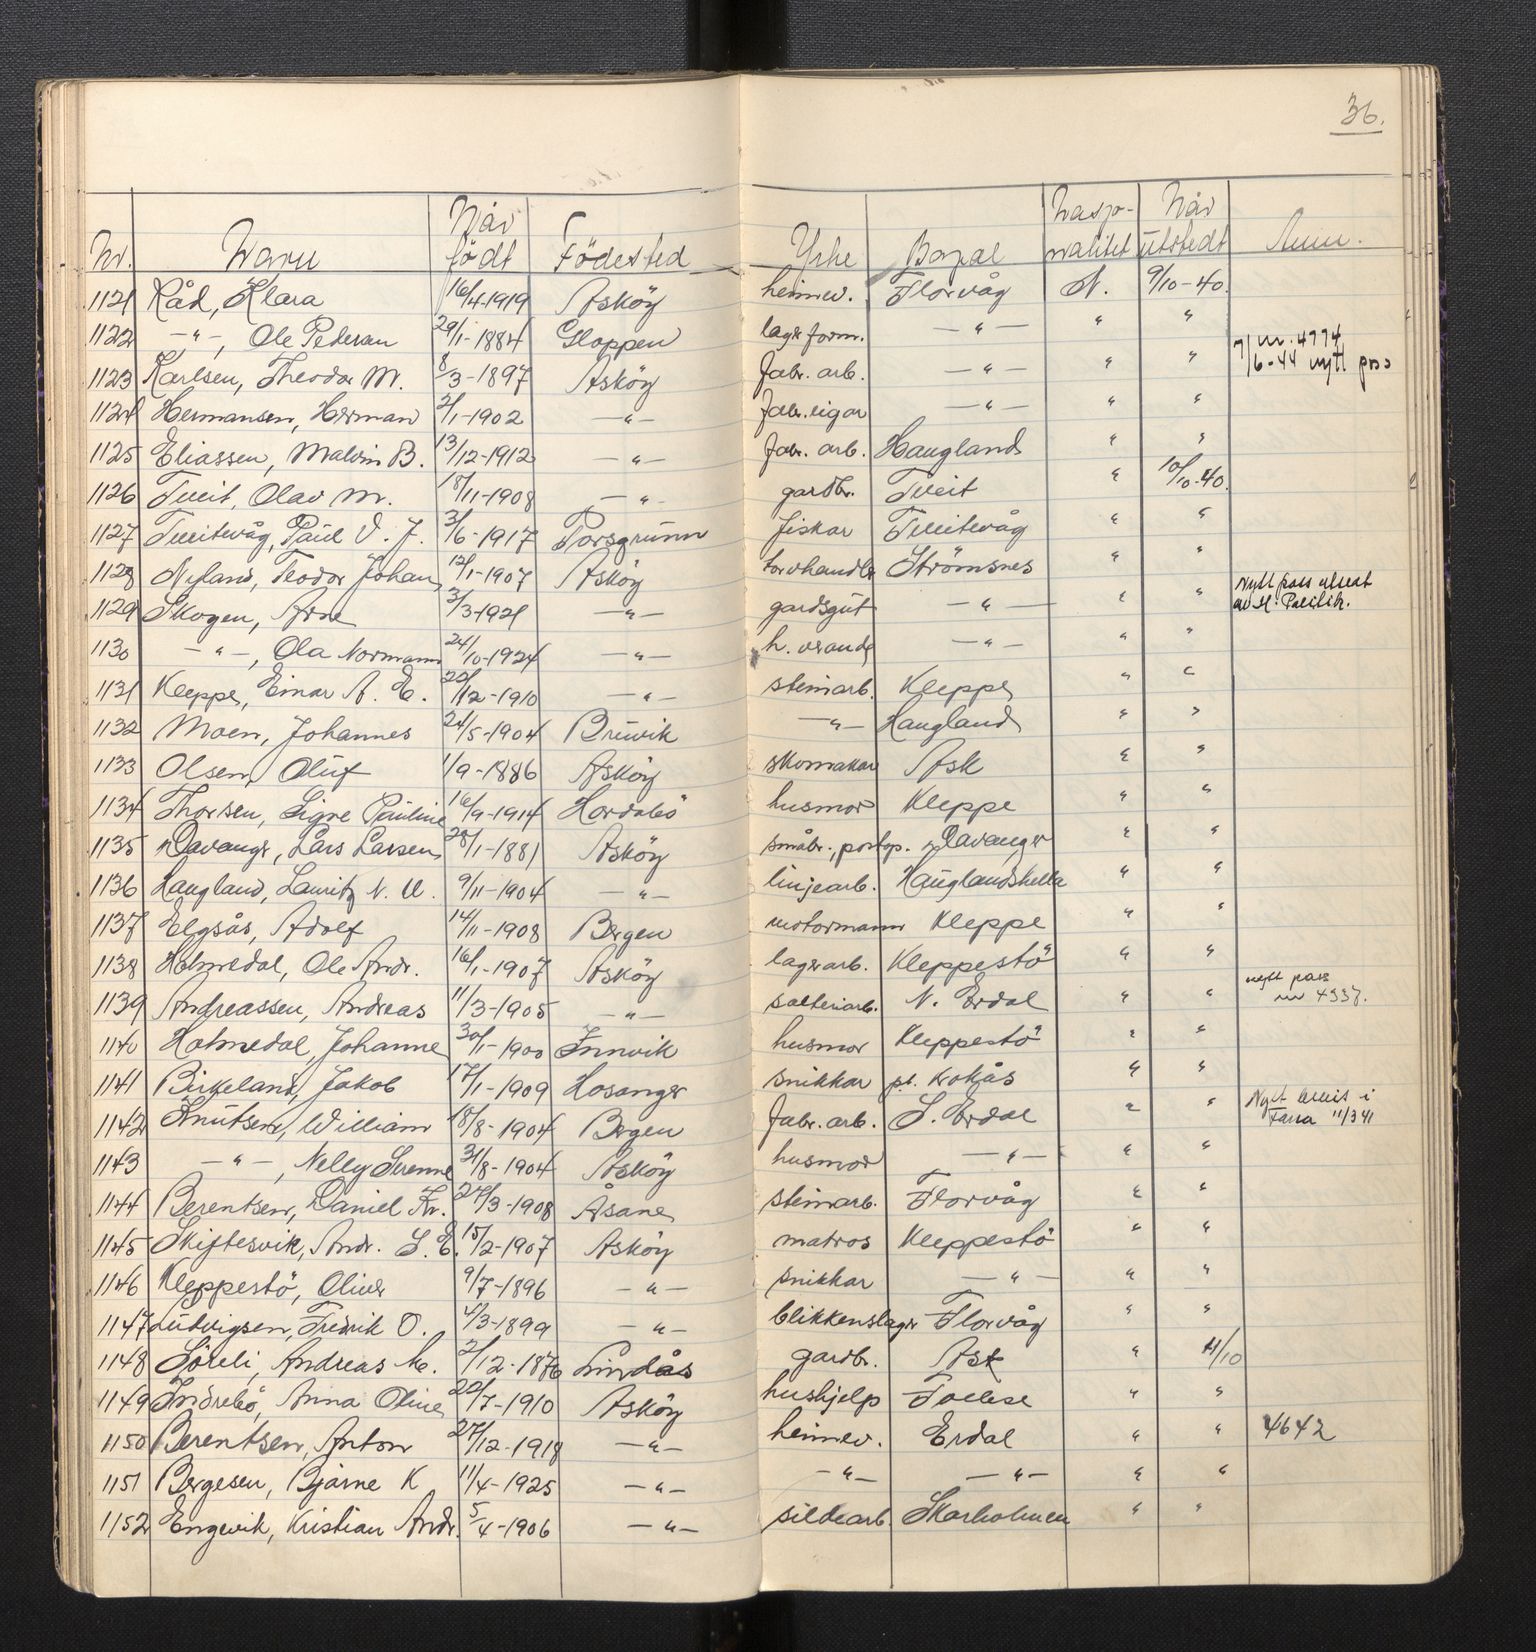 36.
Nr. Namn Når födt Födested Yrke Bopæl Nasjo-nalitet Når utstedt Anm.
1121 Råd, Klara 16/4-1919 Asköy heimev. Florvåg N. 9/10-40.
1122 —"—, Ole Pedersen 29/1-1884 Gloppen lagerform. —"— " "
1123 Karlsen, Theodor M. 8/3-1897 Asköy fabr. arb. —"— " " 7/6-44 nr. 4774 nytt pass
1124 Hermansen, Herman 2/1-1902 —"— fabr.eigar —"— " "
1125 Eliassen, Malvin B. 13/12-1912 —"— fabr. arb. Haugland " "
1126 Tveit, Olav M. 18/11-1908 —"— gardbr. Tveit " 10/10-40.
1127 Tveitevåg, Paul V. J. 3/6-1917 Porsgrunn fiskar Tveitevåg " "
1128 Nyland, Teodor Johan 12/1-1907 Asköy torvhandlr Strömsnes " "
1129 Skogen, Arne 3/3-1921 —"— gardsgut —"— " " Nytt pass utstedt av H. Politik.
1130 —"—, Ola Normann 24/10-1924 —"— h. —"— " "
1131 Kleppe, Einar A. E. 22/12-1910 —"— steinarb. Kleppe " "
1132 Moen, Johannes 24/5-1904 Bruvik —"— Haugland " "
1133 Olsen, Oluf 1/9-1886 Asköy skomakar Ask " "
1134 Thorsen, Signe Pauline 16/9-1914 Hordabö husmor Kleppe " "
1135 Davanger, Lars Larsen 28/1-1881 Asköy småbr., postop. Davanger " "
1136 Haugland, Lauritz N. U. 9/11-1904 —"— linjearb. Hauglandshella " "
1137 Elgsås, Adolf 14/11-1908 Bergen motormann Kleppe " "
1138 Holmedal, Ole Andr. 16/1-1907 Asköy lagerarb. Kleppestö " "
1139 Andreassen, Andreas 11/3-1905 —"— salteriarb. N. Erdal " " nytt pass nr 4337.
1140 Holmedal, Johanne 30/1-1900 Innvik husmor Kleppestö " "
1141 Birkeland, Jakob 17/1-1909 Hosanger snikkar pt. Krokås " "
1142 Knutsen, William 18/8-1904 Bergen fabr. arb. S. Erdal " " Nytt bevis i Fana 11/3 41
1143 —"—, Nelly Sverrine 31/8-1904 Asköy husmor —"— " "
1144 Berentsen, Daniel Kr. 27/3-1908 Åsane steinarb. Florvåg " "
1145 Skiftesvik, Andr. S. E. 15/2-1907 Asköy matros Kleppestö " "
1146 Kleppestö, Oliver 9/7-1896 —"— snikkar —"— " "
1147 Ludvigsen, Fredrik O. 4/3-1899 —"— blikkenslager Florvåg " "
1148 Söreli, Andreas M. 2/12-1876 Lindås gardbr. Ask " 11/10
1149 Indrebö, Anna Oline 22/7-1910 Asköy hushjelp Follese " "
1150 Berentsen, Anton 27/12-1918 —"— heimev. Erdal " " 4642
1151 Bergesen, Bjarne K 11/4-1925 —"— —"— —"— " "
1152 Engevik, Kristian Andr. 5/4-1906 —"— sildearb. Skarholmen " "